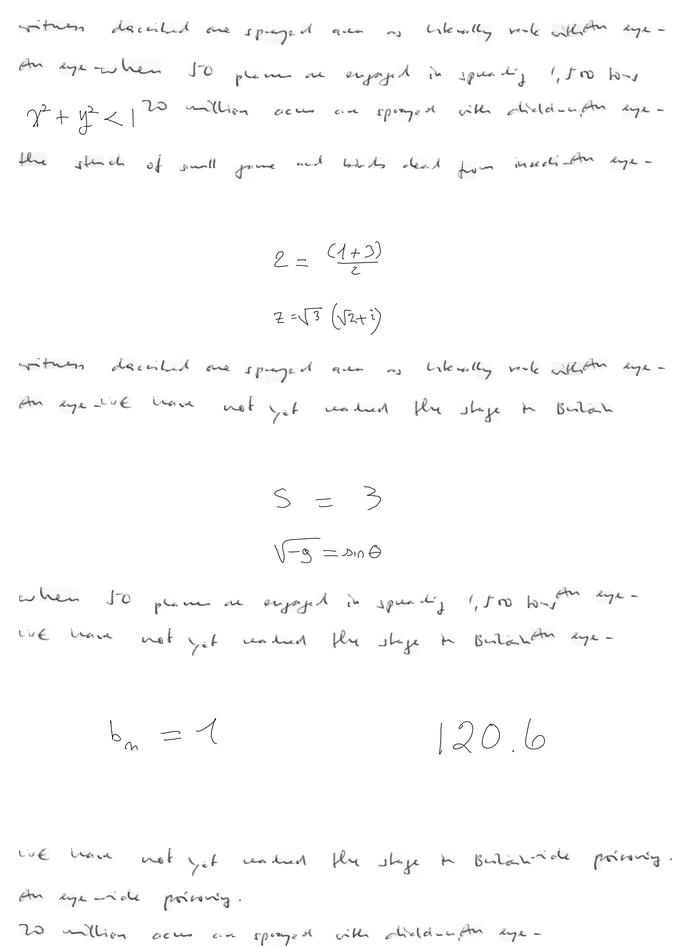 witness described one sprayed area as literally reek with An eye-
An eye-when 50 planes are engaged in spreading 1,500 tons
x² + y² < 1 20 million acres are sprayed with dieldrin, An eye-
the stench of small game and birds dead from insecti-An eye-
2 = (1+3)/2
z = √3 (√2+i)
witness described one sprayed area as literally reek with An eye-
An eye-WE have not yet reached the stage in Britain
S = 3
√-g = sin θ
when 50 planes are engaged in spreading 1,500 tons An eye-
WE have not yet reached the stage in Britain An eye-
bₙ = 1 120.6
WE have not yet reached the stage in Britain-wide poisoning.
An eye-wide poisoning.
20 million acres are sprayed with dieldrin, An eye-